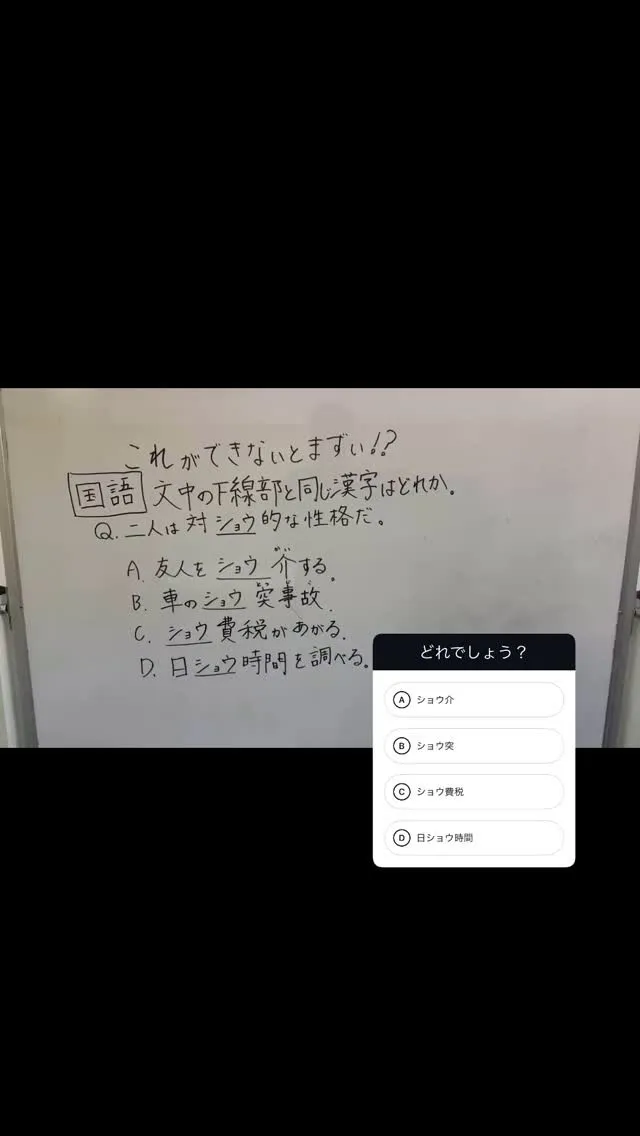 これができないとまずい!?
国語 文中の下線部と同じ漢字はどれか。
Q. 二人は対ショウ的な性格だ。
A. 友人をショウ介する。
かい
B. 車のショウ突事故.
とつ じ こ
C. ショウ費税があがる.
D. 日ショウ時間を調べる.
どれでしょう？
A ショウ介
B ショウ突
C ショウ費税
D 日ショウ時間